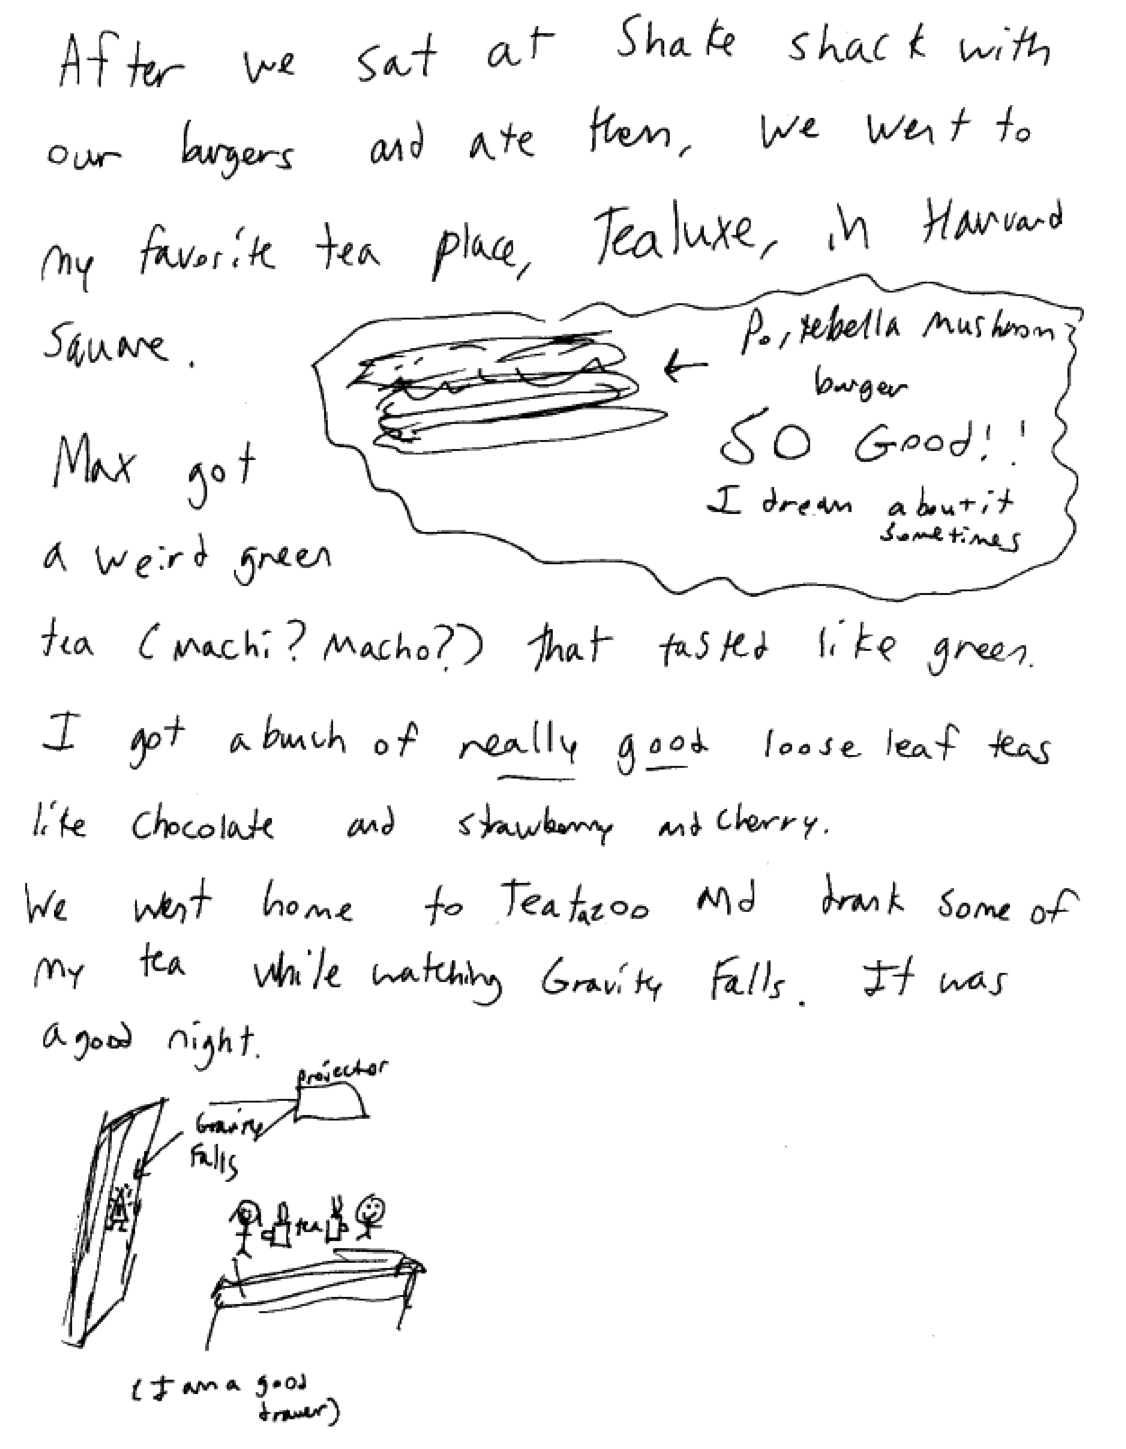 After we sat at Shake shack with
our burgers and ate them, we went to
my favorite tea place, Tealuxe, in Harvard
Square.
Portebella mushroom
burger
SO Good!!
I dream about it
sometimes
Max got
a weird green
tea (Machi? Macho?) that tasted like green.
I got a bunch of really good loose leaf teas
like Chocolate and strawberry and Cherry.
We went home to Teatazoo and drank some of
my tea while watching Gravity Falls. It was
a good night.
Projector
Gravity
Falls
tea
(I am a good
drawer)